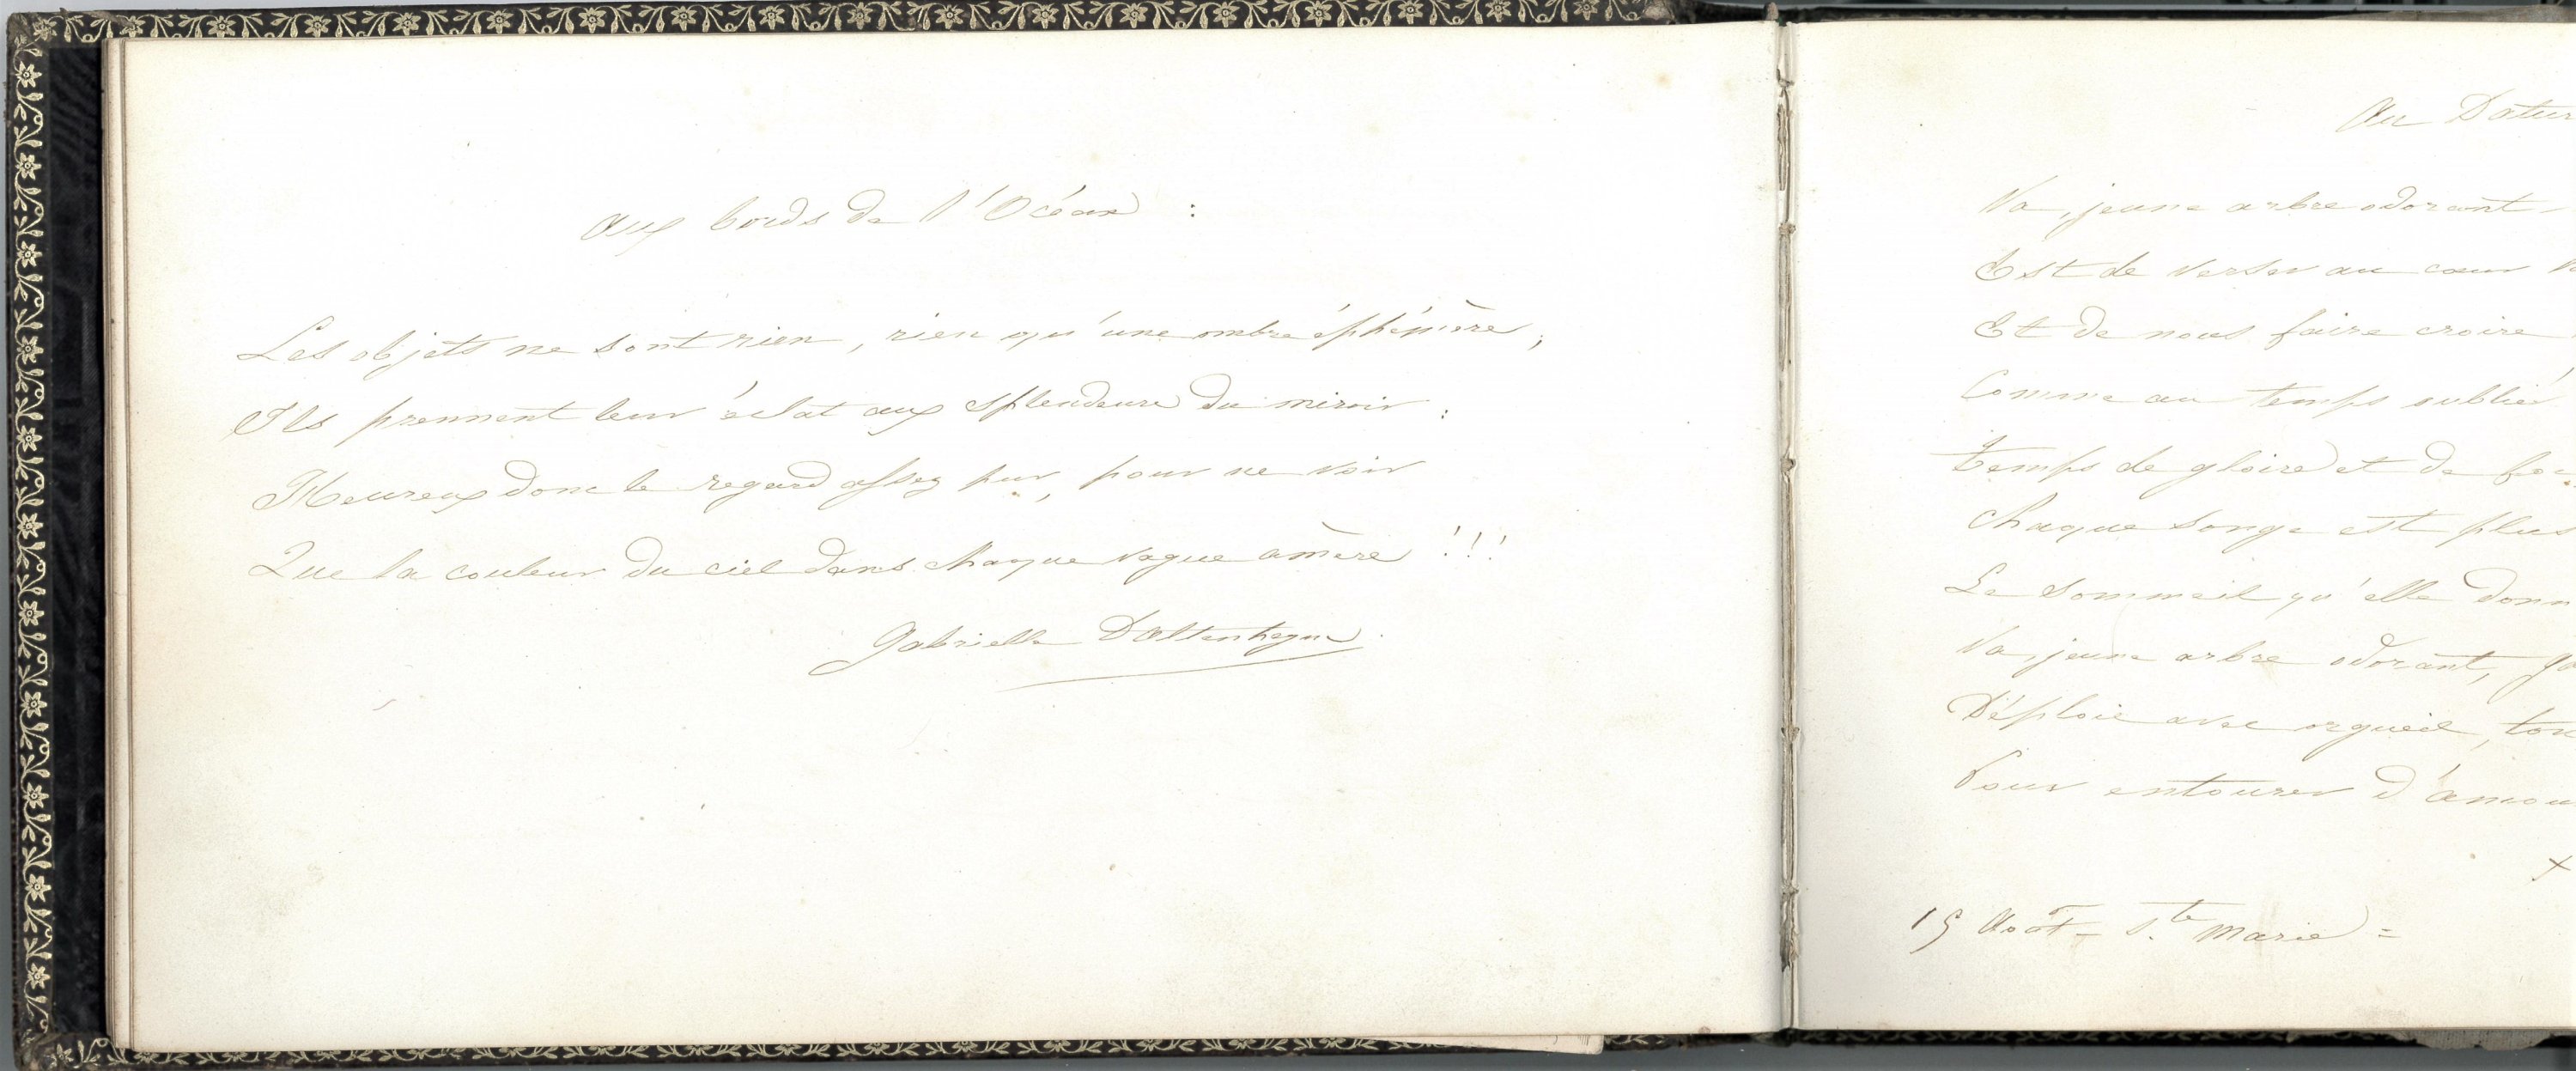 Aux bords de l'Océan :
Les objets ne sont rien, rien qu'une ombre éphémère ;
Ils prennent leur éclat aux splendeurs du miroir :
Heureux donc le regard assez pur, pour ne voir
Que la couleur du ciel dans chaque vague amère !!!
Gabrielle D'Altenheym
Au Datur
Va, jeune arbre odorant
Est de verser au cœur
Et de nous faire croire
Comme au temps oublié
Temps de gloire et de
Chaque songe est plus
Le sommeil qu'elle donn
Va, jeune arbre odorant,
Déploie avec orgueil, ton
Pour entourer d'amou
x
15 Août - Ste Marie =